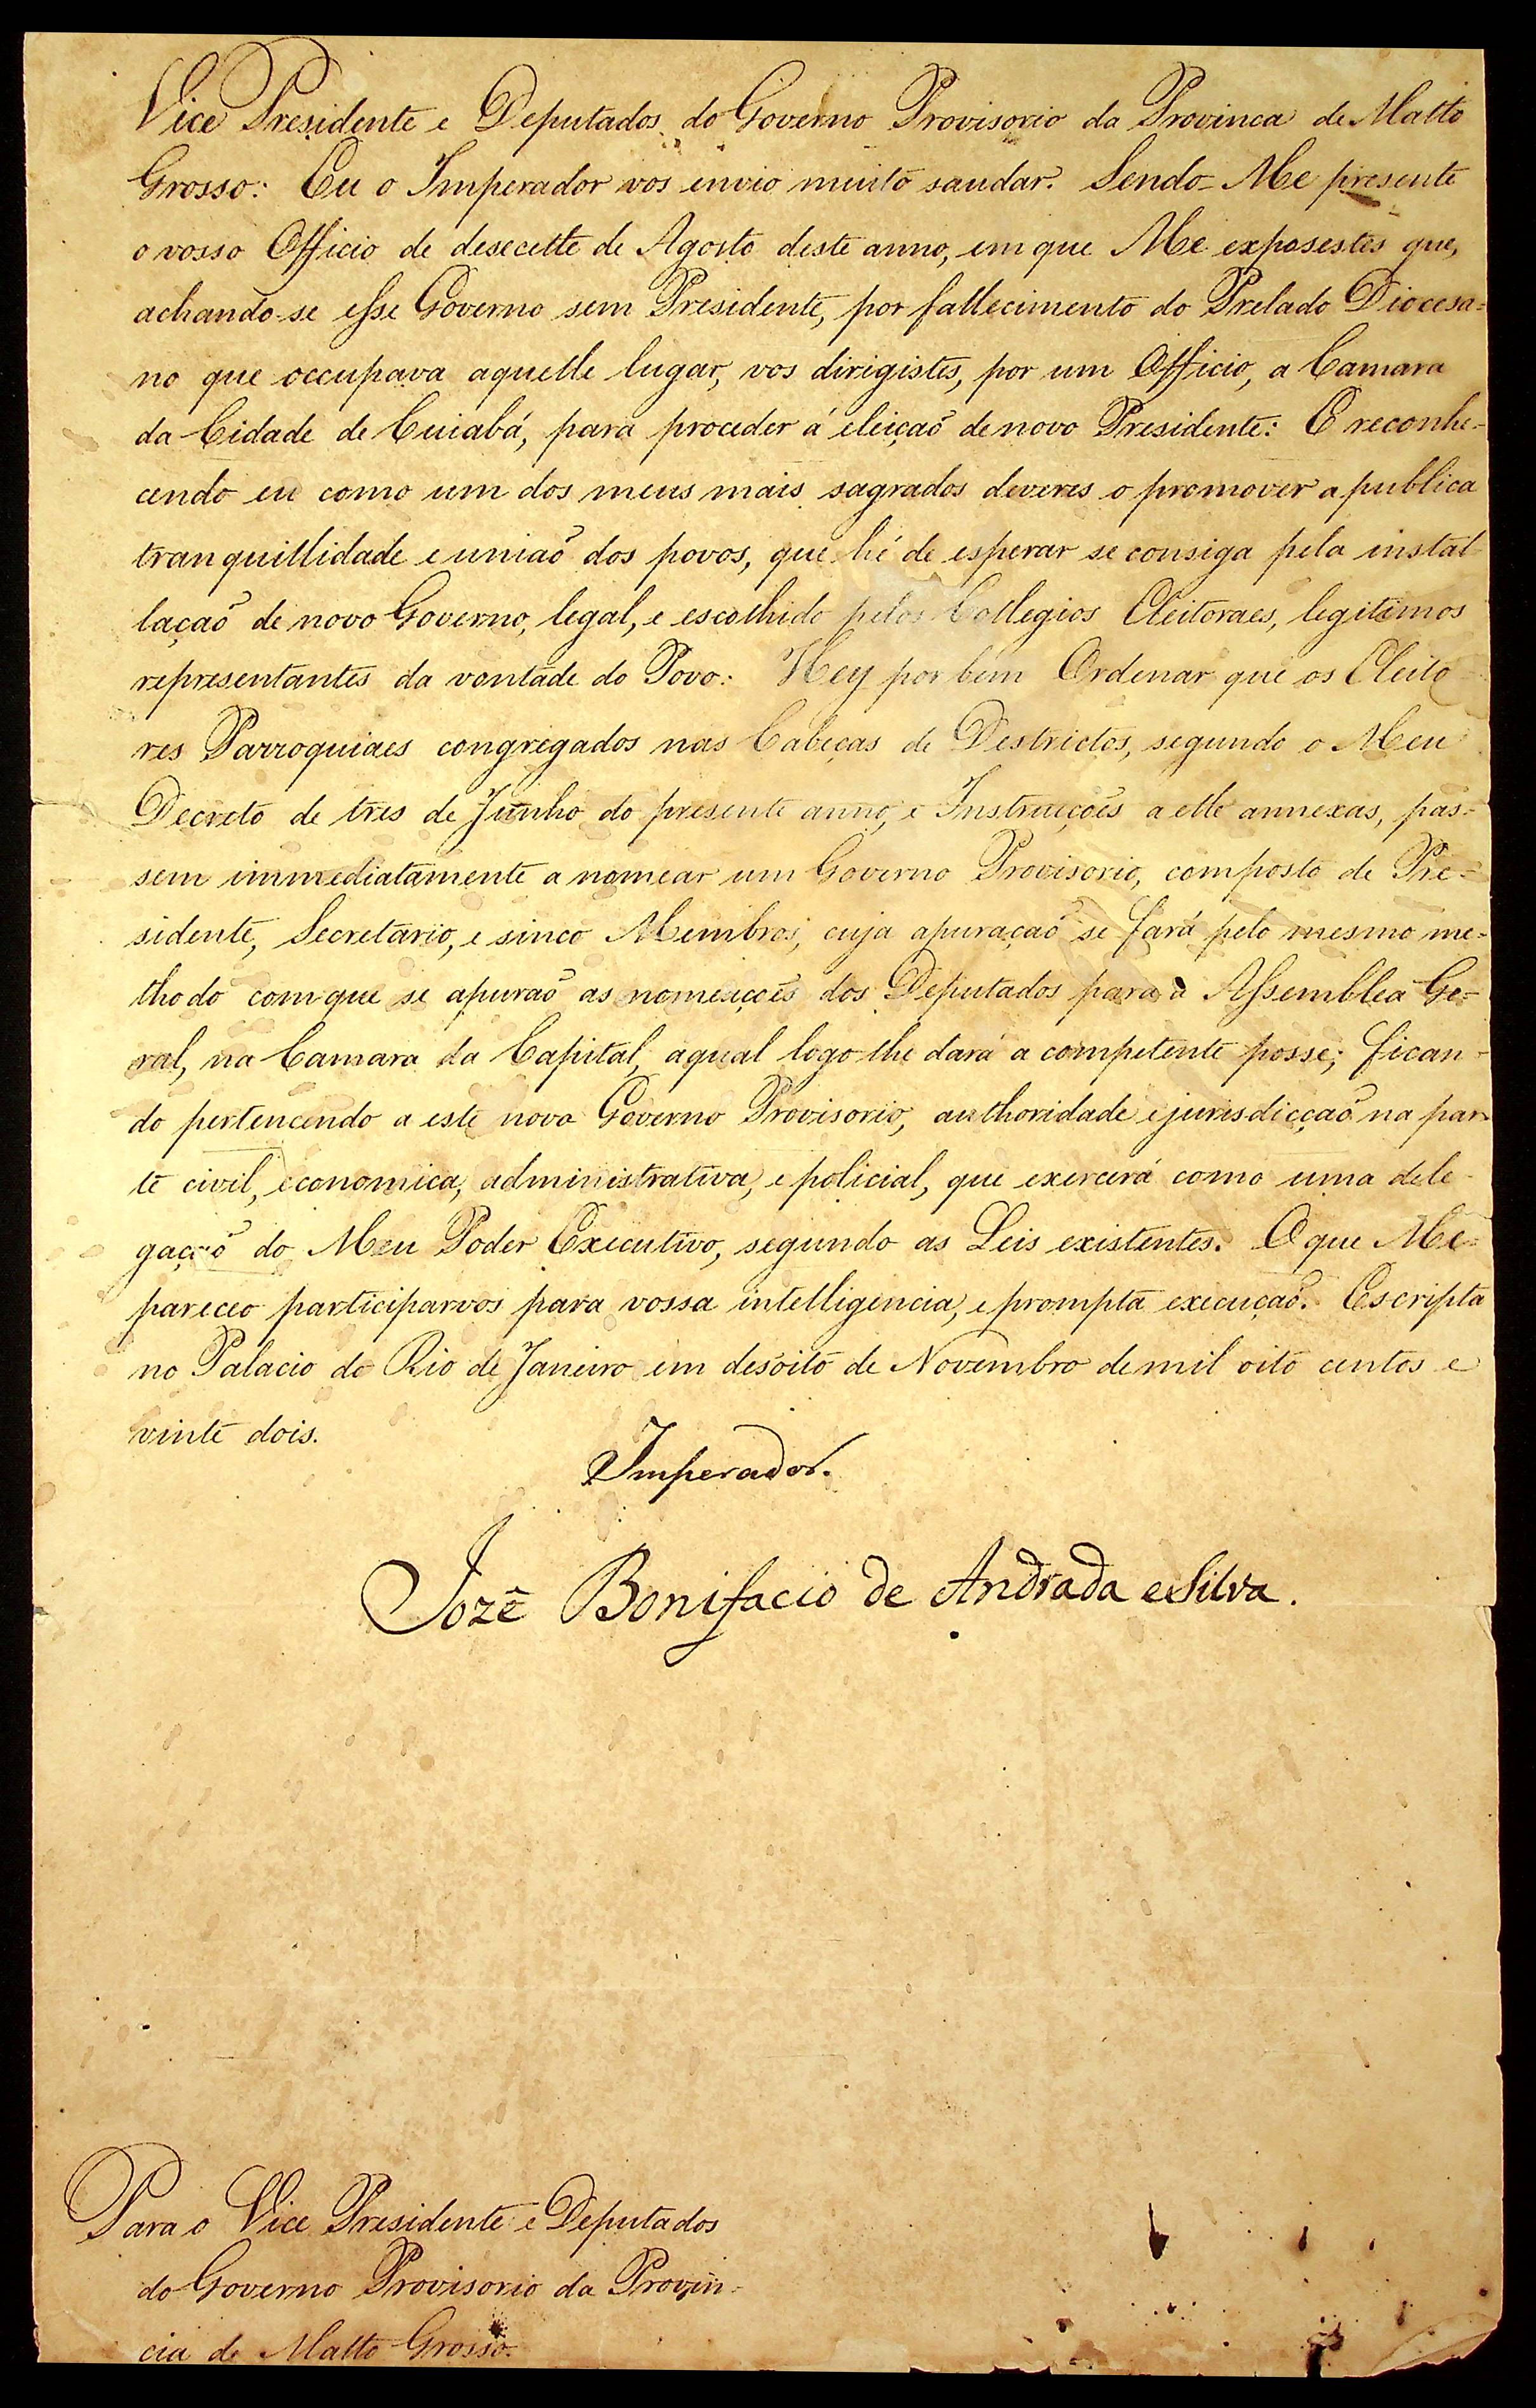 Vice Presidente e Deputados do Governo Provisorio da Provinca de Matto
Grosso: Eu o Imperador vos envio muito saudar. Sendo-Me presente
o vosso Officio de desecette de Agosto deste anno, em que Me exposestes que,
achando-se esse Governo sem Presidente, por fallecimento do Prelado Diocesa=
no que occupava aquelle lugar, vos dirigistes, por um Officio, a Camara
da Cidade de Cuiabá, para proceder á eleiçaõ de novo Presidente: E reconhe=
cendo eu como um dos meus mais sagrados deveres o promover a publica
tranquillidade e uniaõ dos povos, que hé de esperar se consiga pela instal-
laçaõ de novo Governo, legal, e escolhido pelos Collegios Eleitoraes, legitimos
representantes da vontade do Povo: Hey por bem Ordenar que os Eleito-
res Parroquiaes congregados nas Cabeças de Destrictos, segundo o Meu
Decreto de tres de Junho do presente anno, e Instrucções a elle annexas, pas=
sem immediatamente a nomear um Governo Provisorio, composto de Pre=
sidente, Secretario, e sinco Membros, cuja apuraçaõ se fará pelo mesmo me=
thodo com que se apuraõ as nomeações dos Deputados para a Assemblea Ge=
ral, na Camara da Capital, a qual logo lhe dará a competente posse; fican-
do pertencendo a este novo Governo Provisorio, authoridade e jurisdicçaõ na par-
te civil, economica, administrativa, e policial, que exercerá como uma dele-
gaçaõ do Meu Poder Executivo, segundo as Leis existentes. O que Me=
pareceo participarvos para vossa intelligencia, e prompta execuçaõ. Escripta
no Palacio do Rio de Janeiro em desoito de Novembro de mil oito centos e
vinte dois.
Imperador.
Jozê Bonifacio de Andrada e Silva.
Para o Vice Presidente e Deputados
do Governo Provisorio da Provin=
cia de Matto Grosso.